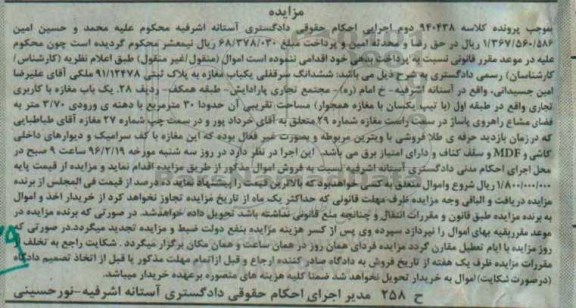 مزایده
بموجب پرونده کلاسه ۹۴۰۴۳۸ دوم اجرایی احکام حقوقی دادگستری آستانه اشرفیه محکوم علیه محمد و حسین امین
۱/۳۶۷/۵۶۰/۵۸۶ ریال در حق رضا و محدثه امین و پرداخت مبلغ ۶۸/۳۷۸/۰۳۰ ریال نیمعشر محکوم گردیده است چون محکوم
علیه در موعد مقرر قانونی نسبت به پرداخت بدهی خود اقدامی ننموده است اموال (منقول/غیر منقول) طبق اعلام نظریه (کارشناس/
کارشناسان) رسمی دادگستری به شرح ذیل می باشد: ششدانگ سرقفلی یکباب مغازه به پلاک ثبتی ۹۱/۱۲۴۷۸ ملکی آقای علیرضا
امین جسیدانی، واقع در آستانه اشرفیه - خ امام (ره) - مجتمع تجاری پارادایش- طبقه همکف- ردیف ۲۸. یک باب مغازه با کاربری
تجاری واقع در طبقه اول (با تیپ یکسان با مغازه همجوار) مساحت تقریبی آن حدودا ۳۰ مترمربع با دهنه ی ورودی ۲/۷۰ متر به
فضای مشاع راهروی پاساژ در سمت راست مغازه شماره ۲۹ متعلق به آقای خرداد پور و در سمت چپ شماره ۲۷ مغازه آقای طباطبایی
که در زمان بازدید حرفه ی طلا فروشی با ویترین مربوطه و بصورت غیر فعال بوده که این مغازه با کف سرامیک و دیوارهای داخلی
کاشی و MDF و سقف کناف و دارای امتیاز برق می باشد. این اجرا در نظر دارد در روز سه شنبه مورخه ۹۶/۲/۱۹ ساعت ۹ صبح در
محل اجرای احکام مدنی دادگستری آستانه اشرفیه نسبت به فروش اموال مذکور از طریق مزایده اقدام نماید و مزایده از قیمت پایه
۱/۸۰۰/۰۰۰/۰۰۰ ریال شروع و اموال متعلق به کسی خواهد بود که بالاترین قیمت را پیشنهاد نماید ده درصد از قیمت فی المجلس از برنده
مزایده دریافت و الباقی وجه مزایده ظرف مهلت قانونی که حداکثر یک ماه از تاریخ مزایده تجاوز نخواهد کرد از خریدار اخذ و اموال
به برنده مزایده طبق قانون و مقررات انتقال و چنانچه منع قانونی نداشته باشد تحویل داده خواهدشد. در صورتی که برنده مزایده در
موعد مقرربقیه بهای اموال را نپردازد سپرده وی پس از کسر هزینه مزایده بنفع دولت ضبط و مزایده تجدید میگردد.در صورتی که
روز مزایده با ایام تعطیل مقارن گردد مزایده فردای همان روز در همان ساعت و همان مکان برگزار میگردد . شکایت راجع به تخلف از
مقررات مزایده ظرف یک هفته از تاریخ فروش به دادگاه صادر کننده ارجاع و قبل ازاتمام مهلت مذکور یا قبل از اتخاذ تصمیم دادگاه
(درصورت شکایت) اموال به خریدار تحویل نخواهد شد ضمنا کلیه هزینه های متصوره برعهده خریدار میباشد.
ح ۲۵۸ مدیر اجرای احکام حقوقی دادگستری آستانه اشرفیه-نورحسینی